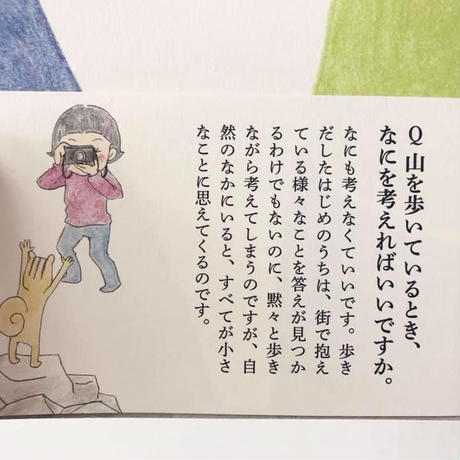 Q 山を歩いているとき、
なにを考えればいいですか。
なにも考えなくていいです。歩き
だしたはじめのうちは、街で抱え
ている様々なことを答えが見つか
るわけでもないのに、黙々と歩き
ながら考えてしまうのですが、自
然のなかにいると、すべてが小さ
なことに思えてくるのです。